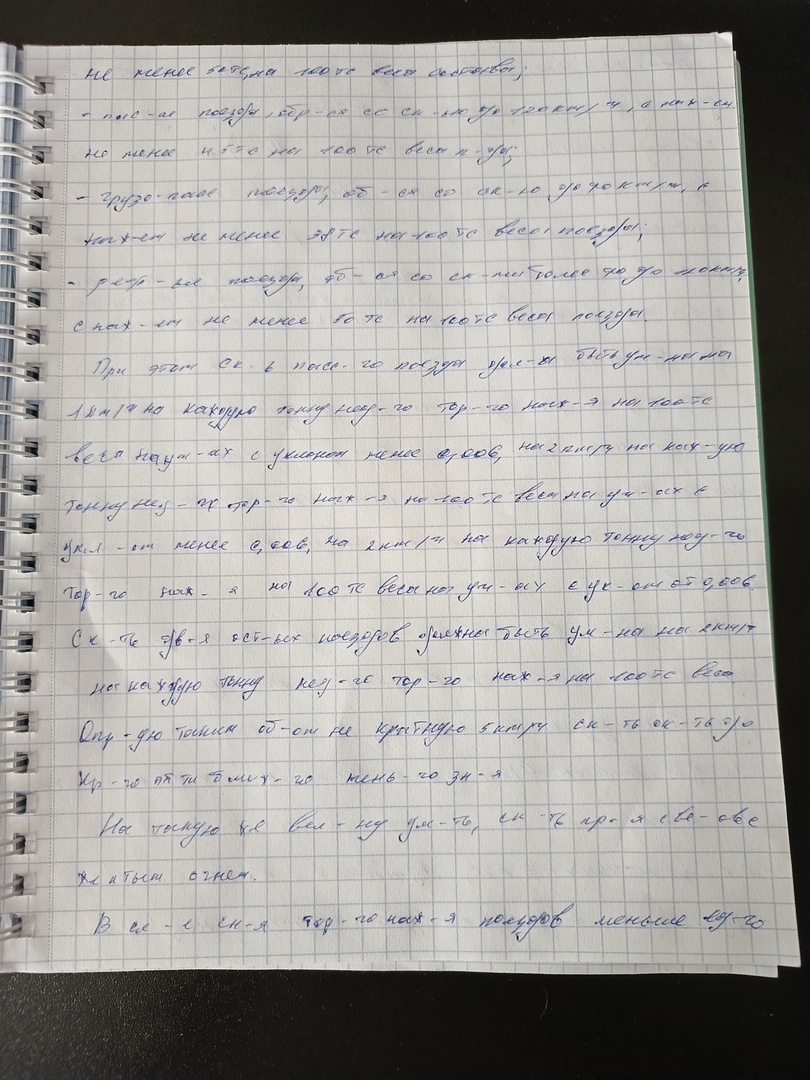 не менее 50 тс, на 100 тс веса состава;
- пас-ие поезда, обр-ся со ск-ью до 120 км/ч, с наж-ем
не менее 45 тс на 100 тс веса п-да;
- грузо-пасс поезда, об-ся со ск-ю до 90 км/ч, с
наж-ем не менее 38 тс на 100 тс веса поезда;
- реф-ые поезда, об-ся со ск-ми более 90 до 120 км/ч,
с наж-ем не менее 50 тс на 100 тс веса поезда.
При этом ск-ь пасс-го поезда дол-а быть ум-на на
1 км/ч на каждую тонну нед-го тор-го наж-я на 100 тс
веса на ум-ах с уклоном менее 0,006, на 2 км/ч на каж-ую
тонну нед-го тор-го наж-я на 100 тс веса на ум-ах с
укл-ом менее 0,006, на 2 км/ч на каждую тонну нед-го
тор-го наж-я на 100 тс веса на ум-ах с ук-ом от 0,006.
Ск-ть дв-я ост-ых поездов должна быть ум-на на 2 км/ч
на каждую тонну нед-го тор-го наж-я на 100 тс веса.
Опр-ую таким об-ом не кратную 5 км/ч ск-ть ок-ть до
кр-го пяти ближ-го мень-го зн-я
На такую же вел-ну ум-ть, ск-ть пр-я с
жёлтым огнем.
В сл-е сн-я тор-го наж-я поездов меньше ед-го